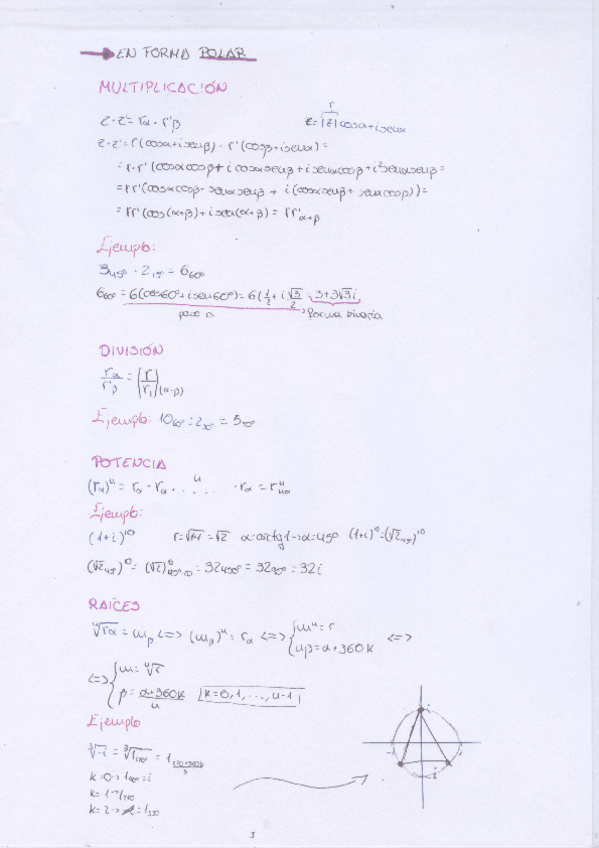 → EN FORMA POLAR
MULTIPLICACIÓN
z·z' = rα · r'β
r
z = |z| cosα + i senα
z·z' = r(cosα + i senα) · r'(cosβ + i senα) =
= r·r'(cosα cosβ + i cosα senβ + i senα cosβ + i² senα senβ =
= rr'(cosα cosβ - senα senβ + i(cosα senβ + senα cosβ)) =
= rr'(cos(α+β) + i sen(α+β) = rr'α+β
Ejemplo:
3₄₅° · 2₁₅° = 6₆₀°
6₆₀° = 6(cos60° + i sen60°) = 6(1/2 + i √3/2 = 3+3√3i
paso a forma binaria
DIVISIÓN
rα/r'β = (r/r')(α-β)
Ejemplo: 10₆₀° : 2₃₀° = 5₃₀°
POTENCIA
(rα)ⁿ = rα · rα · . . . n . . . · rα = rⁿnα
Ejemplo:
(1+i)¹⁰ r = √1+1 = √2 α = arctg1 → α = 45° (1+i)¹⁰ = (√2₄₅°)¹⁰
(√2₄₅°)¹⁰ = (√2)¹⁰₄₅°·₁₀ = 32₄₅₀° = 32₉₀° = 32i
RAÍCES
ⁿ√rα = mβ <=> (mβ)ⁿ = rα <=> { mⁿ = r <=>
nβ = α + 360k
<=> { m = ⁿ√r
β = α+360k/n k = 0, 1, ..., n-1
Ejemplo
³√-i = ³√1₂₇₀° = 1 270+360k/3
k = 0 → 1₉₀° = i
k = 1 → 1₂₁₀
k = 2 → 1₃₃₀
i
-1
-i
5